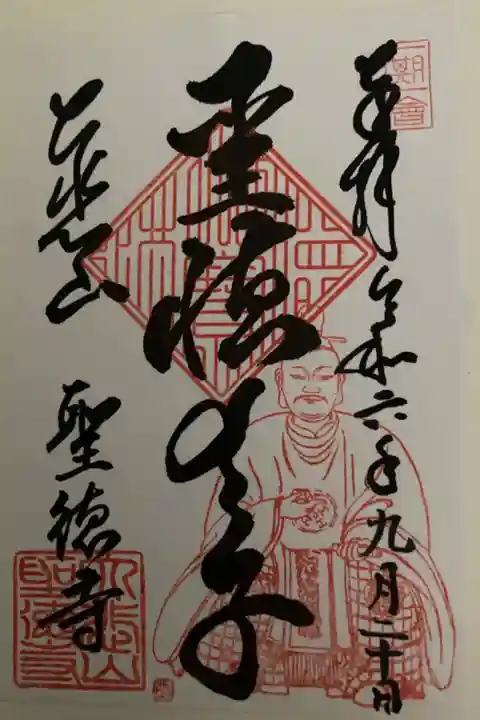 一期一會
奉拝 令和六年九月二十日
聖徳太子
大悲山 聖徳寺